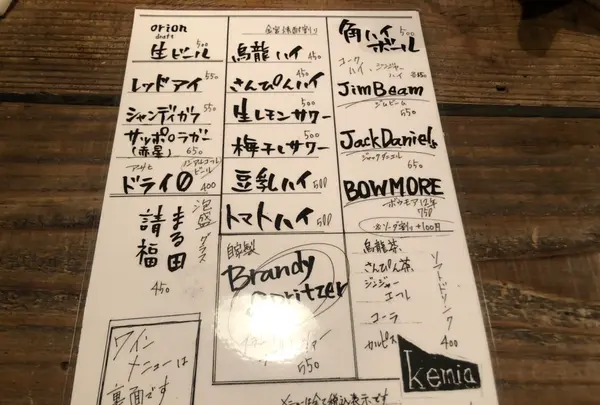 orion
draft
生ビール 500
レッドアイ 550
シャンディガフ 550
サッポロラガー
(赤星) 650
ノンアルコール
ビール
ドライ0 400
泡盛 グラス
まる田
請福
450
ワイン
メニューは
裏面です
烏龍ハイ 450
さんぴんハイ 450
生レモンサワー 500
梅干しサワー 500
豆乳ハイ 500
トマトハイ 500
自家製
Brandy
Spritzer
550
メニューは全て税込表示です
角ハイ
ボール 500
コーク
ハイ、ジンジャー
ハイ
JimBeam
ジムビーム
550
JackDaniels
ジャックダニエル
650
BOWMORE
ボウモア12年
750
※ソーダ割り +100円
ソフトドリンク
400
烏龍茶
さんぴん茶
ジンジャー
エール
コーラ
カルピス
kemia